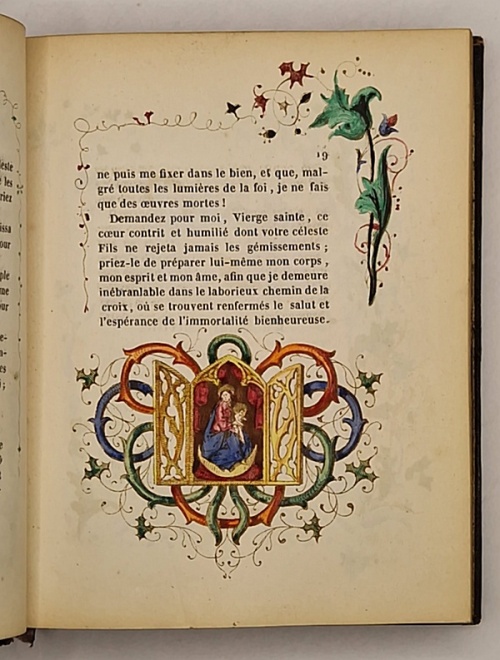 19
ne puis me fixer dans le bien, et que, mal-
gré toutes les lumières de la foi, je ne fais
que des œuvres mortes !
Demandez pour moi, Vierge sainte, ce
cœur contrit et humilié dont votre céleste
Fils ne rejeta jamais les gémissements ;
priez-le de préparer lui-même mon corps,
mon esprit et mon âme, afin que je demeure
inébranlable dans le laborieux chemin de la
croix, où se trouvent renfermés le salut et
l'espérance de l'immortalité bienheureuse.